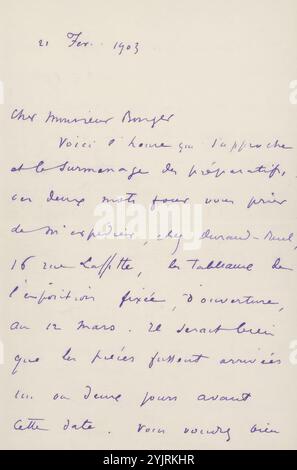 21 Fev. 1903
Cher Monsieur Bonger
Voici l'heure qui s'approche
et le surmenage des préparatifs,
ces deux mots pour vous prier
de m'expédier, chez Durand-Ruel,
16 rue Laffitte, les tableaux de
l'exposition fixée, d'ouverture,
au 12 mars. Il serait bien
que les pièces fussent arrivées
un ou deux jours avant
cette date. Vous voudrez bien
alamy
Image ID: 2YJRKHR
www.alamy.com